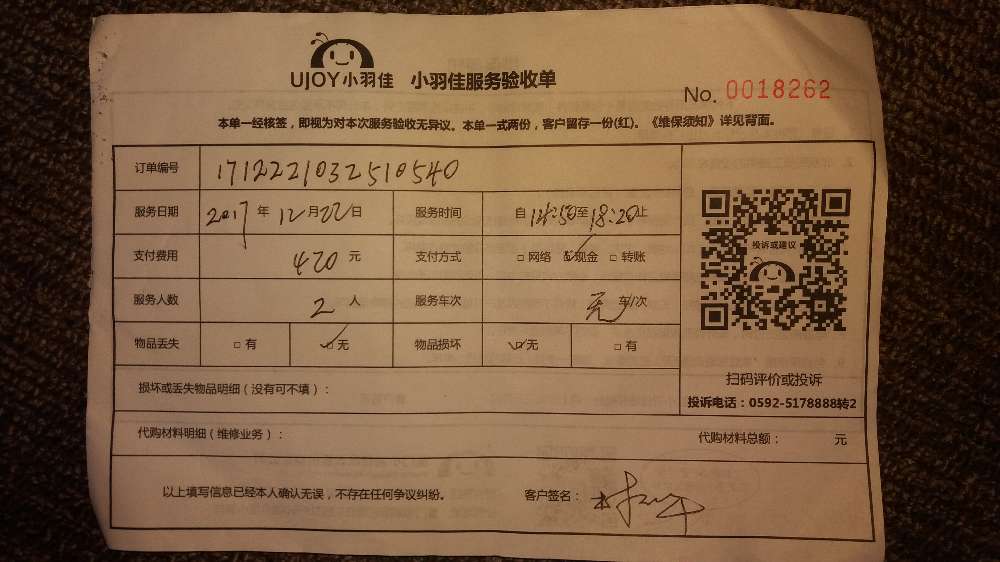 UJOY小羽佳 小羽佳服务验收单
No. 0018262
本单一经核签，即视为对本次服务验收无异议。本单一式两份，客户留存一份(红)。《维保须知》详见背面。
订单编号 1712221032510540
服务日期 2017年12月22日 服务时间 自14:50至18:20止
支付费用 420元 支付方式 □网络 ☑现金 □转账
服务人数 2人 服务车次 无车/次
物品丢失 □有 ☑无 物品损坏 ☑无 □有
投诉或建议
扫码评价或投诉
投诉电话：0592-5178888转2
损坏或丢失物品明细（没有可不填）：
代购材料明细（维修业务）： 代购材料总额： 元
以上填写信息已经本人确认无误，不存在任何争议纠纷。 客户签名：